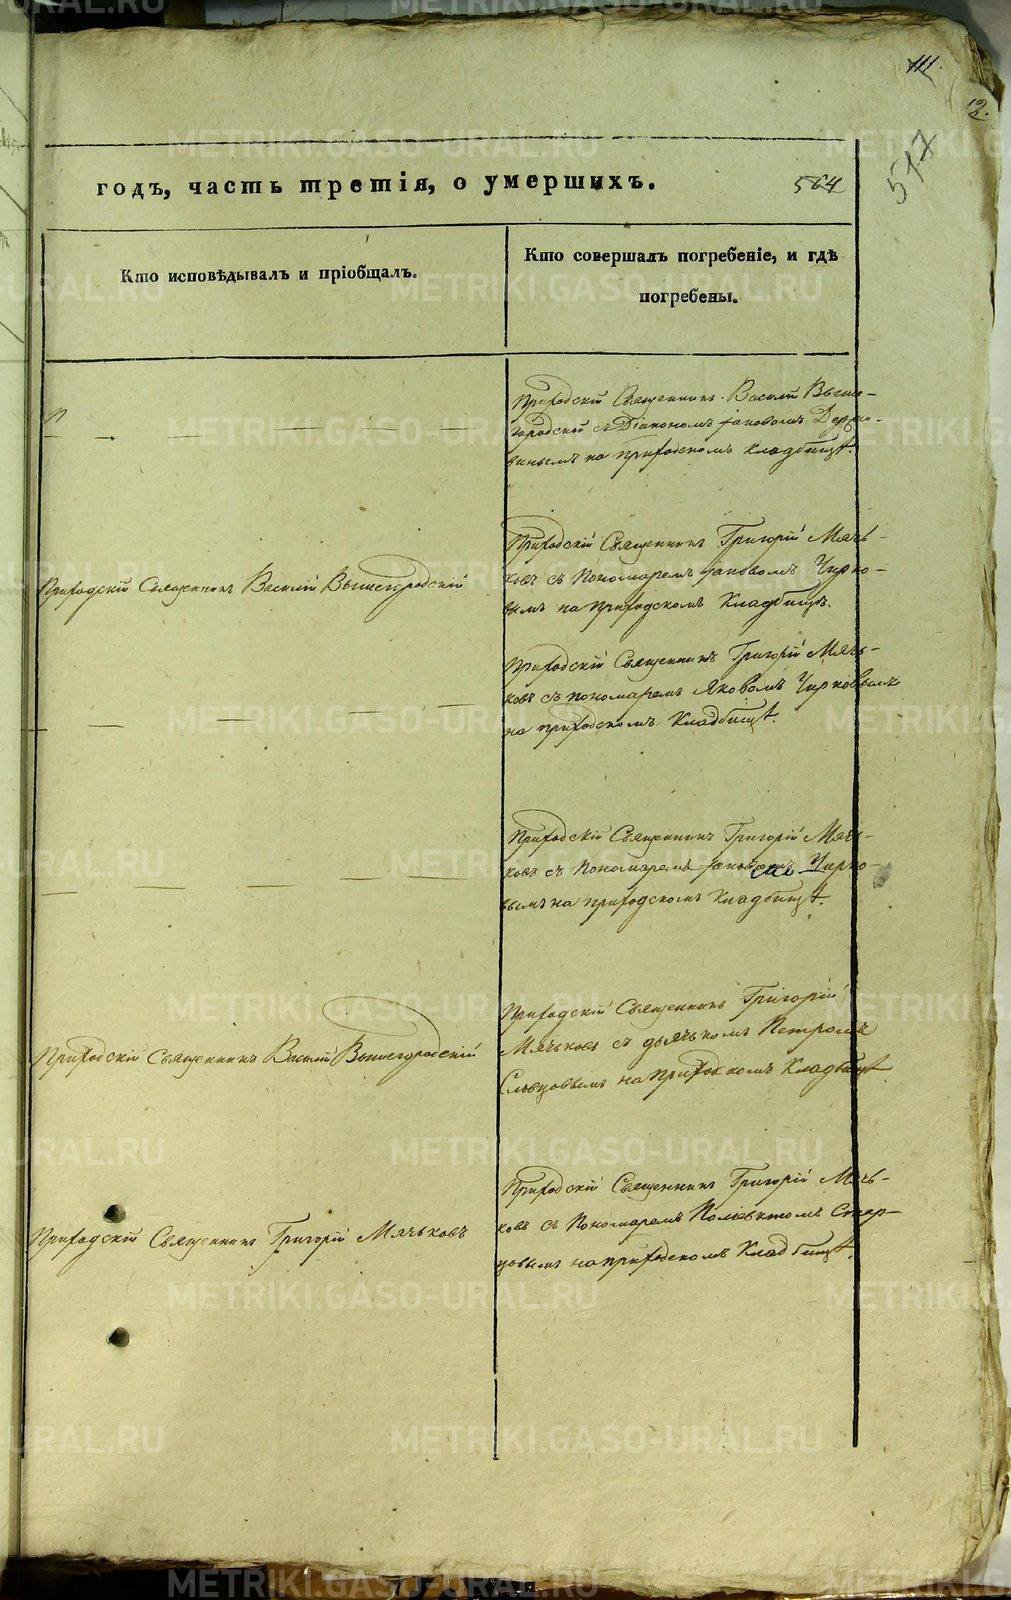 111.
12.
577
годъ, часть третія, о умершихъ. 564
Кто исповѣдывалъ и пріобщалъ.
Кто совершалъ погребеніе, и гдѣ
погребены.
Приходскій Священникъ Василій Выше-
городскій съ Діакономъ Іаковомъ
на приходскомъ кладбищѣ.
Приходскій Священникъ Василій Вышегородскій
Приходскій Священникъ Григорій Мячь-
ковъ съ Пономаремъ Іаковомъ Чирко-
вымъ на Приходскомъ Кладбищѣ.
Приходскій Священникъ Григорій Мячь-
ковъ съ пономаремъ Яковомъ Чирковымъ
на приходскомъ Кладбищѣ.
Приходскій Священникъ Григорій Мячь-
ковъ съ Пономаремъ Іаковомъ Чирко-
вымъ на приходскомъ Кладбищѣ.
Приходскій Священникъ Василій Вышегородскій
Приходскій Священникъ Григорій
Мячьковъ съ дьячькомъ Петромъ
Слѣпцовымъ на приходскомъ Кладбищѣ
Приходскій Священникъ Григорій Мячьковъ
Приходскій Священникъ Григорій Мячь-
ковъ съ Пономаремъ Полиевктомъ Стар-
цовымъ на приходскомъ Кладбищѣ.
METRIKI.GASO-URAL.RU